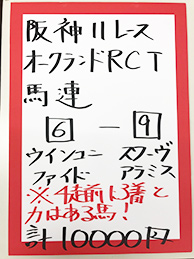 阪神11レース
オークランドRCT
馬連
6 - 9
ウインコン スターヴ
ファイド アラミス
※4走前に3番と
力はある馬!
計10000円